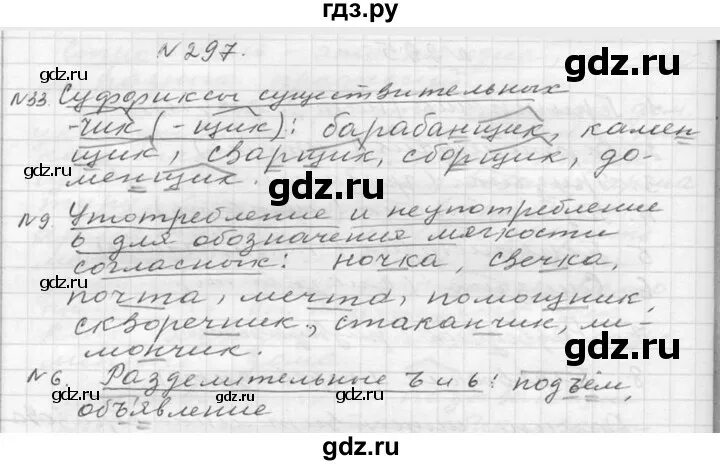 гдз.ру
№297.
№33. Суффиксы существительных
-чик (-щик): барабанщик, камен-
щик, сварщик, сборщик, до-
менщик.
№9. Употребление и неупотребление
ь для обозначения мягкости
согласных: ночка, свечка,
почта, мечта, помощник,
скворечник, стаканчик, ли-
мончик.
№6. Разделительные ъ и ь: подъём,
объявление
gdz.ru
gdz.ru
gdz.ru
gdz.ru
gdz.ru
gdz.ru